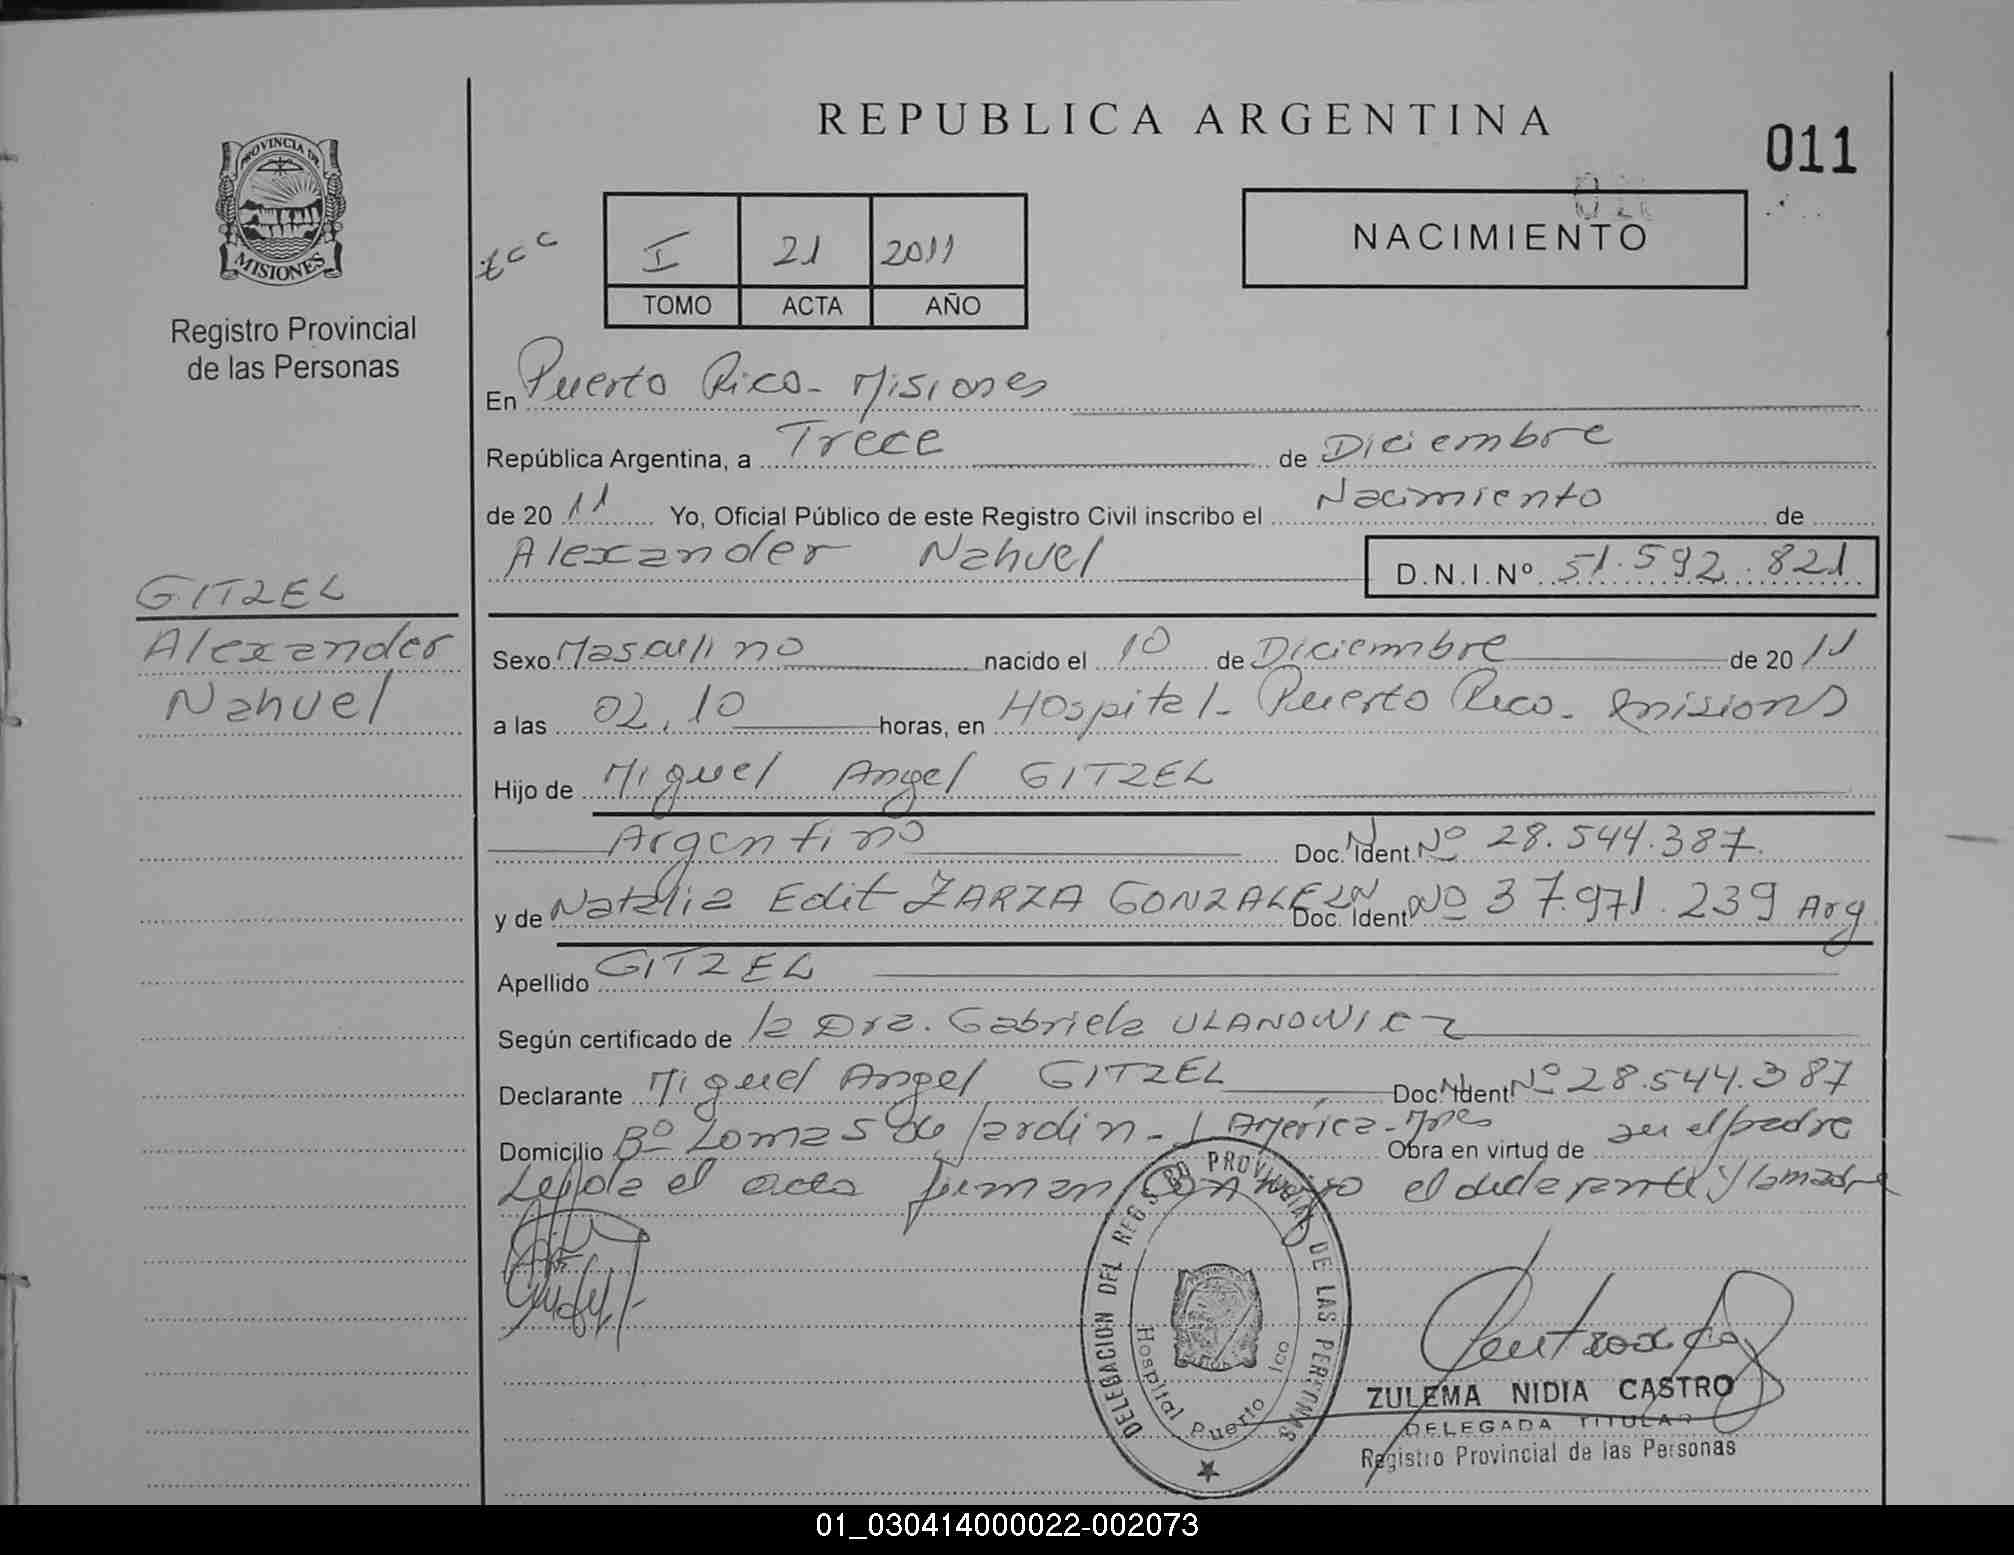 REPUBLICA ARGENTINA
011
PROVINCIA DE
MISIONES
Registro Provincial
de las Personas
I 21 2011
TOMO ACTA AÑO
NACIMIENTO
En Puerto Rico - Misiones
República Argentina, a Trece de Diciembre
de 20 11 Yo, Oficial Público de este Registro Civil inscribo el Nacimiento de
Alexander Nahuel D.N.I.Nº 51.592.821
GITZEL
Alexander
Nahuel
Sexo Masculino nacido el 10 de Diciembre de 20 11
a las 02,10 horas, en Hospital - Puerto Rico - Misiones
Hijo de Miguel Angel GITZEL
Argentino Doc. Ident. Nº 28.544.387.
y de Natalia Edit ZARZA GONZALEZ Doc. Ident. Nº 37.971.239 Arg
Apellido GITZEL
Según certificado de la Dra. Gabriela ULANOWICZ
Declarante Miguel Angel GITZEL Doc. Ident. Nº 28.544.387
Domicilio Bº Lomas de Jardin - América - Mnes Obra en virtud de ser el padre
Leída el acta firman conmigo el declarante y la madre
DELEGACION DEL REG. PROVINCIAL DE LAS PERSONAS
Hospital Puerto Rico
ZULEMA NIDIA CASTRO
DELEGADA TITULAR
Registro Provincial de las Personas
01_030414000022-002073